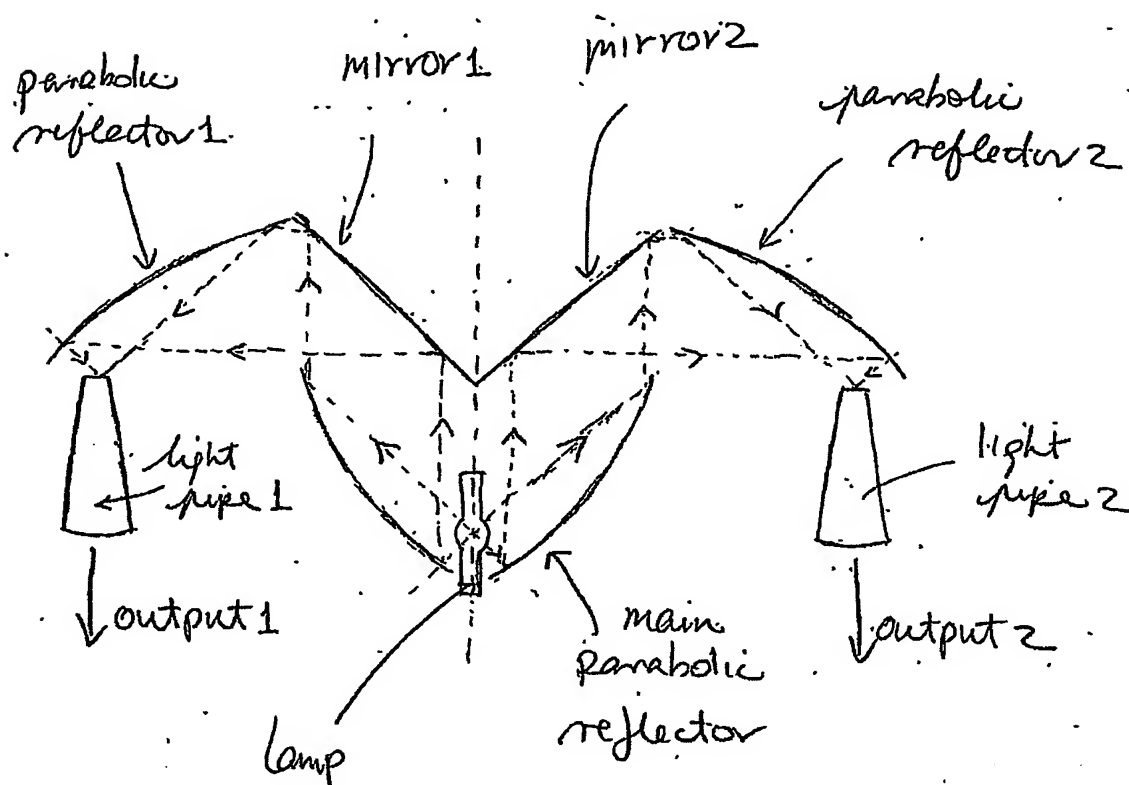 parabolic
reflector1
mirror1
mirror2
parabolic
reflector2
light
pipe1
light
pipe2
output1
main
parabolic
reflector
output2
lamp